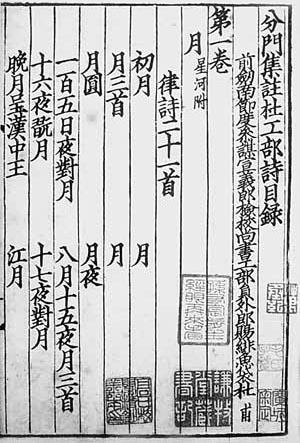 分門集註杜工部詩目錄
前劔南節度叅謀宣義郎檢挍尚書工部員外郎賜緋魚袋杜 甫
第一卷
月 星河附
律詩二十一首
初月 月
月三首 月
月圓 月夜
一百五日夜對月 八月十五夜月三首
十六夜翫月 十七夜對月
月呈漢中王 江月